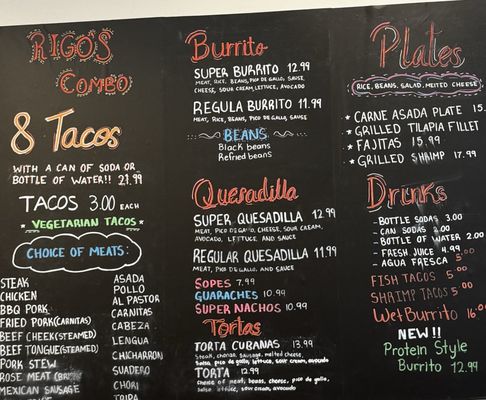 RIGO'S
COMBO
8 Tacos
WITH A CAN OF SODA OR
BOTTLE OF WATER!! 21.99
TACOS 3.00 EACH
* VEGETARIAN TACOS *
CHOICE OF MEATS
STEAK ASADA
CHICKEN POLLO
BBQ PORK AL PASTOR
FRIED PORK (CARNITAS) CARNITAS
BEEF CHEEK (STEAMED) CABEZA
BEEF TONGUE (STEAMED) LENGUA
PORK STEW CHICHARRON
ROSE MEAT SUADERO
MEXICAN SAUSAGE CHORI
TRIPA
Burrito
SUPER BURRITO 12.99
MEAT, RICE, BEANS, PICO DE GALLO, SAUSE,
CHEESE, SOUR CREAM, LETTUCE, AVOCADO
REGULA BURRITO 11.99
MEAT, RICE, BEANS, PICO DE GALLO, SAUSE
BEANS
Black beans
Refried beans
Quesadilla
SUPER QUESADILLA 12.99
MEAT, PICO DE GALLO, CHEESE, SOUR CREAM,
AVOCADO, LETTUCE, AND SAUCE
REGULAR QUESADILLA 11.99
MEAT, PICO DE GALLO, AND SAUCE
SOPES 7.99
GUARACHES 10.99
SUPER NACHOS 10.99
Tortas
TORTA CUBANAS 13.99
Steak, chorizo, Sausage, melted cheese,
Salsa, pico de gallo, lettuce, sour cream, avocado
TORTA 12.99
Choice of meat, beans, cheese, pico de gallo,
Salsa, lettuce, sour cream, avocado
Plates
RICE, BEANS, SALAD, MELTED CHEESE
* CARNE ASADA PLATE 15.
* GRILLED TILAPIA FILLET
* FAJITAS 15.99
* GRILLED SHRIMP 17.99
Drinks
- BOTTLE SODAS 3.00
- CAN SODAS 2.00
- BOTTLE OF WATER 2.00
- FRESH JUICE 4.99
- AGUA FRESCA 5.00
FISH TACOS 5.00
SHRIMP TACOS 5.00
Wet Burrito 16.0
NEW!!
Protein Style
Burrito 12.99